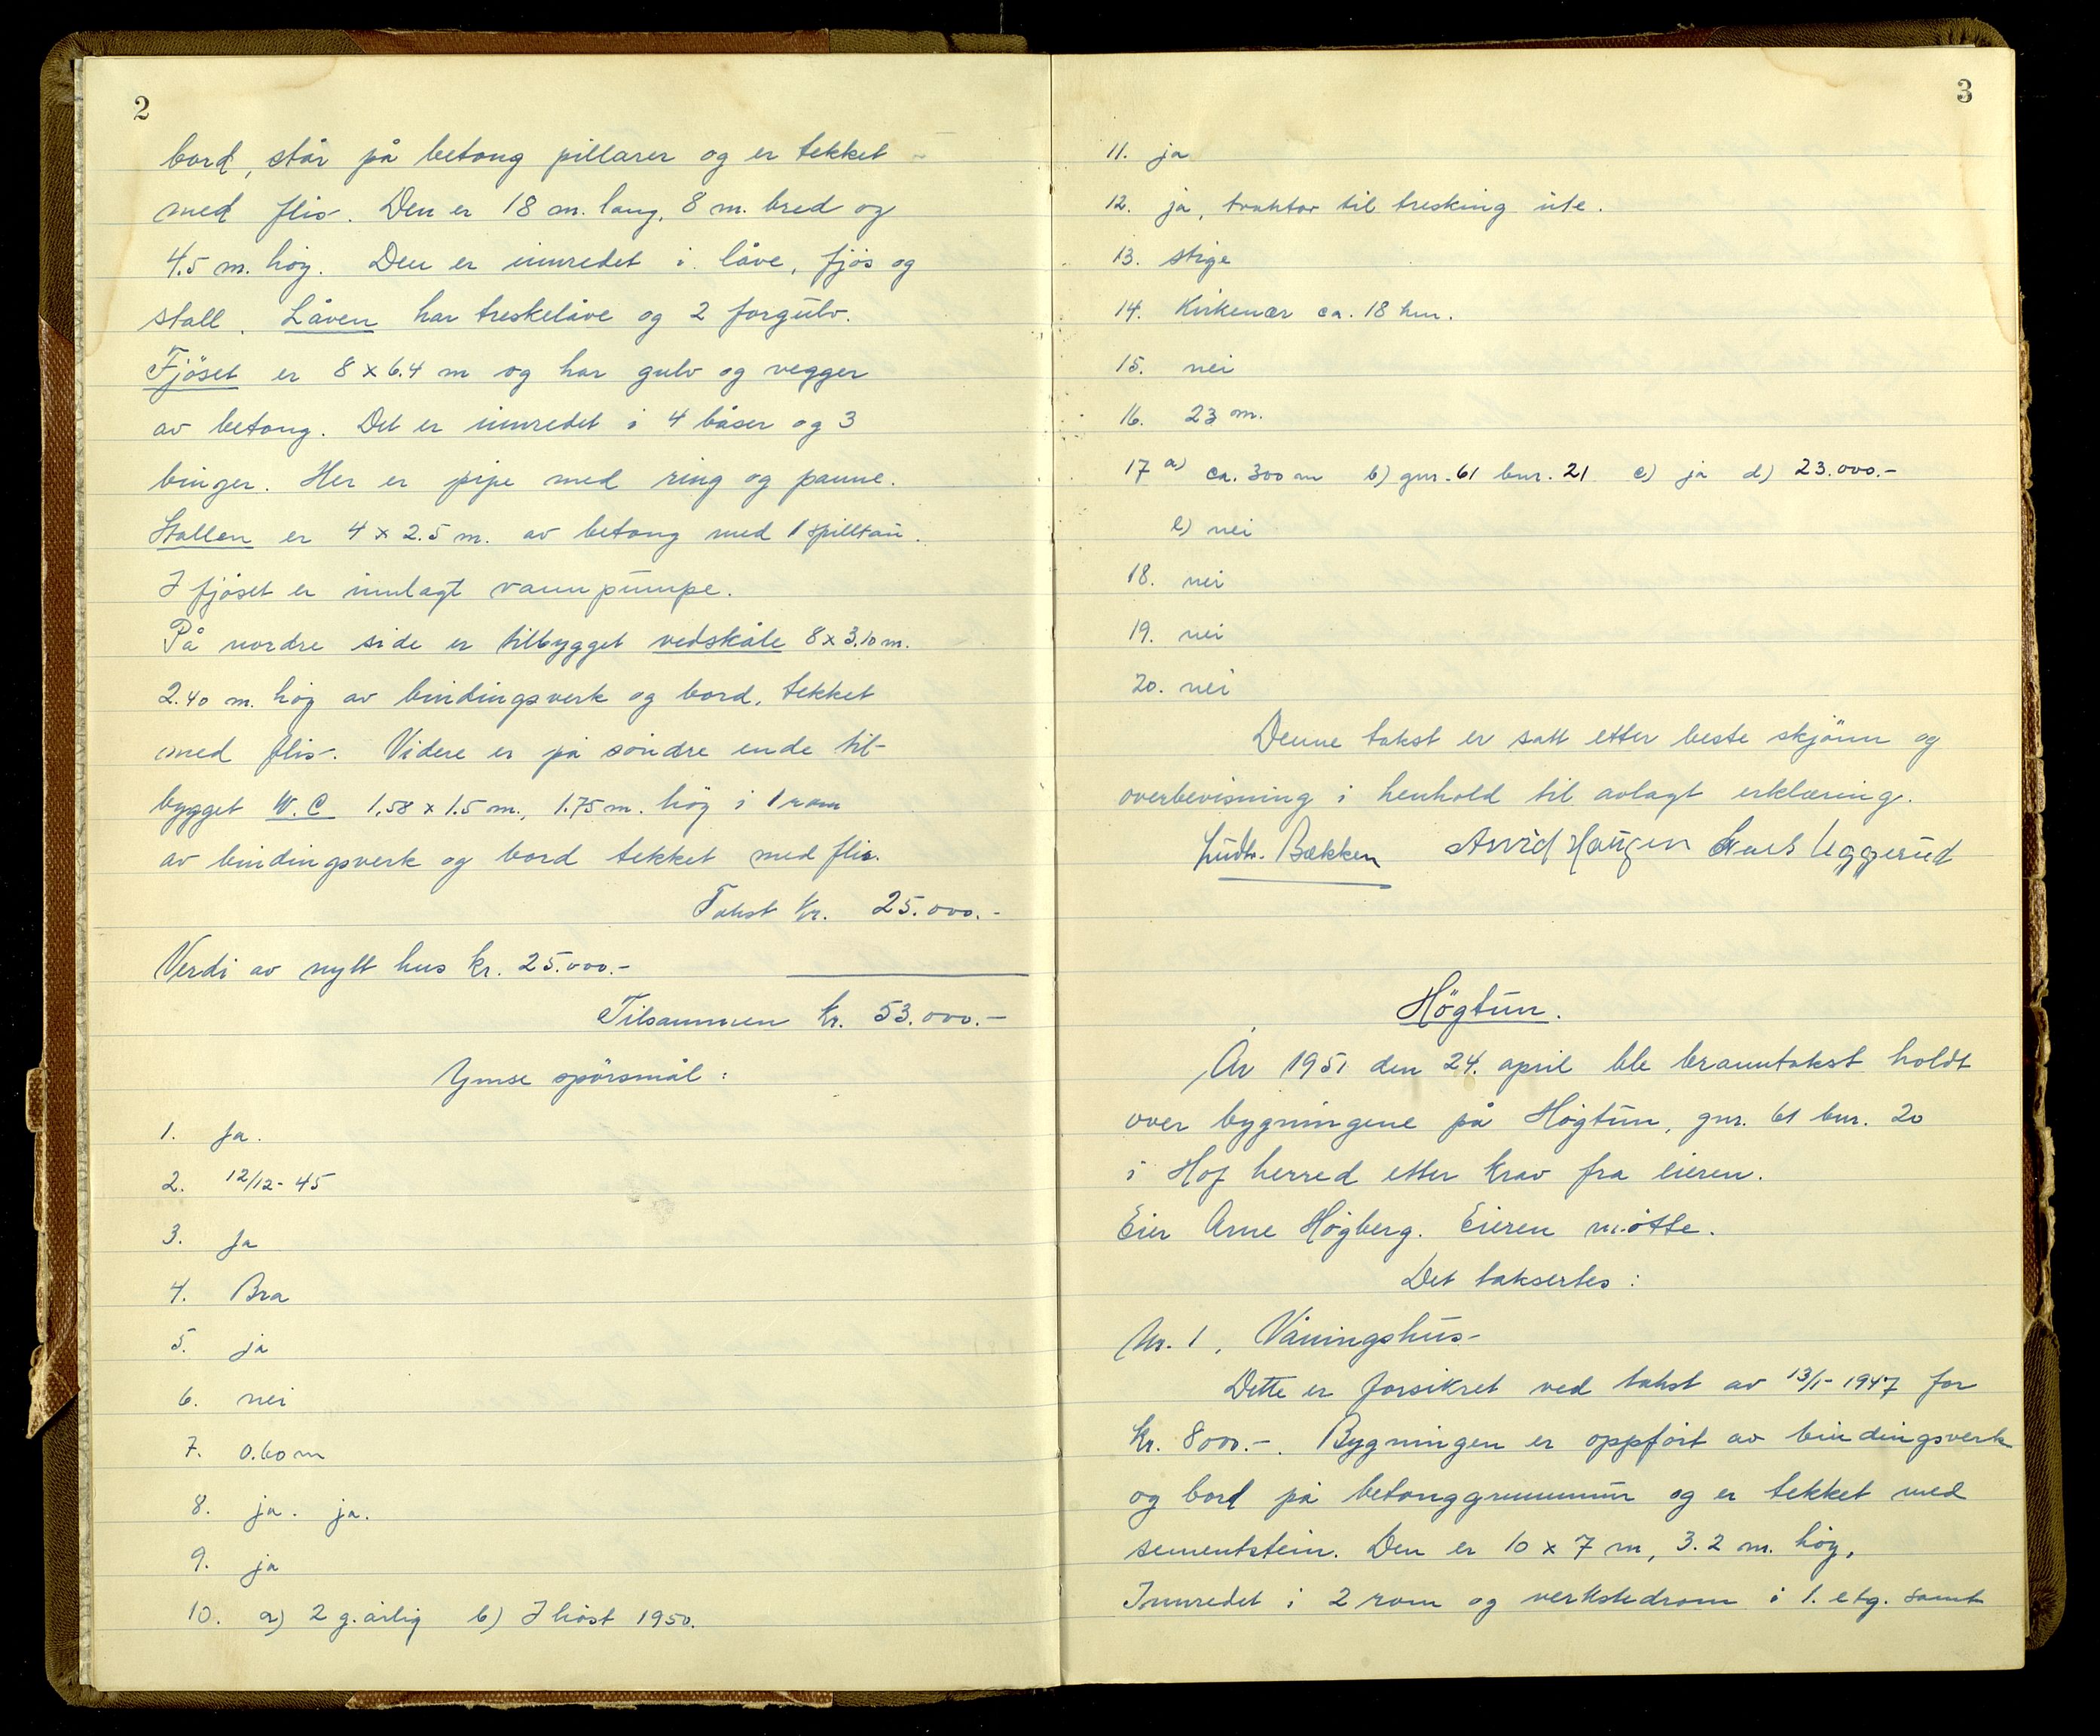 2
bord, står på betong pillarer og er tekket
med flis. Den er 18 m. lang, 8 m. bred og
4.5 m. høy. Den er innredet i låve, fjøs og
stall. Låven har treskelåve og 2 forgulv.
Fjöset er 8 x 6.4 m og har gulv og vegger
av betong. Det er innredet i 4 båser og 3
binger. Her er pipe med ring og panne.
Stallen er 4 x 2.5 m. av betong med 1 spilltau.
I fjöset er innlagt vannpumpe.
På nordre side er tilbygget vedskåle 8 x 3.10 m.
2.40 m. høy av bindingsverk og bord, tekket
med flis. Videre er på söndre ende til-
bygget W.C 1.58 x 1.5 m., 1.75 m. höy i 1 rom
av bindingsverk og bord tekket med flis.
Takst kr. 25.000.-
Verdi av nytt hus kr. 25.000.-
Tilsammen kr. 53.000.-
Ymse spörsmål:
1. Ja.
2. 12/12-45
3. Ja
4. Bra
5. ja
6. nei
7. 0.60 m
8. ja. ja.
9. ja
10. a) 2 g. årlig b) I høst 1950.
3
11. ja
12. ja, traktor til tresking ute.
13. stige
14. Kirkenær ca. 18 km.
15. nei
16. 23 m.
17 a) ca. 300 m b) gnr. 61 bnr. 21 c) ja d) 23.000.-
e) nei
18. nei
19. nei
20. nei
Denne takst er satt etter beste skjönn og
overbevisning i henhold til avlagt erklæring.
Ludv. Bækken Arvid Haugen Uggerud
Högtun.
År 1951 den 24. april ble branntakst holdt
over bygningene på Högtun, gnr. 61 bnr. 20
i Hof herred etter krav fra eieren.
Eier Arne Högberg. Eieren møtte.
Det taksertes:
Nr. 1, Våningshus
Dette er forsikret ved takst av 13/1-1947 for
kr. 8000.-. Bygningen er oppført av bindingsverk
og bord på betonggrunnmur og er tekket med
sementstein. Den er 10 x 7 m, 3.2 m. høy,
Innredet i 2 rom og verkstedrom i 1. etg. samt